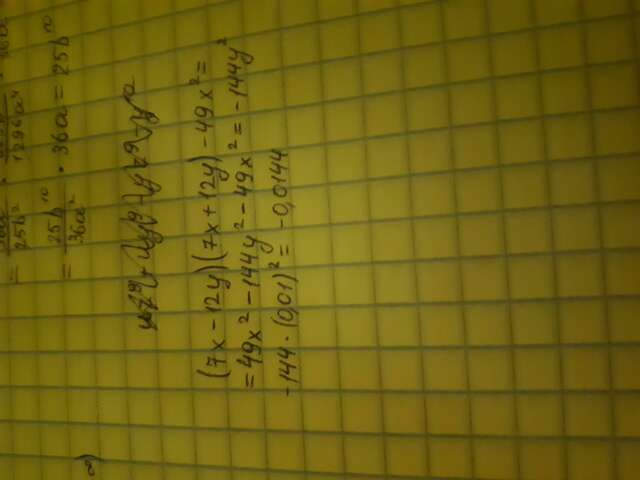 = 25b² 1296a⁴
= 25b¹⁰ / 36a² · 36a = 25b¹⁰
(7x - 12y)(7x + 12y) - 49x² =
= 49x² - 144y² - 49x² = -144y²
-144 · (0,01)² = -0,0144